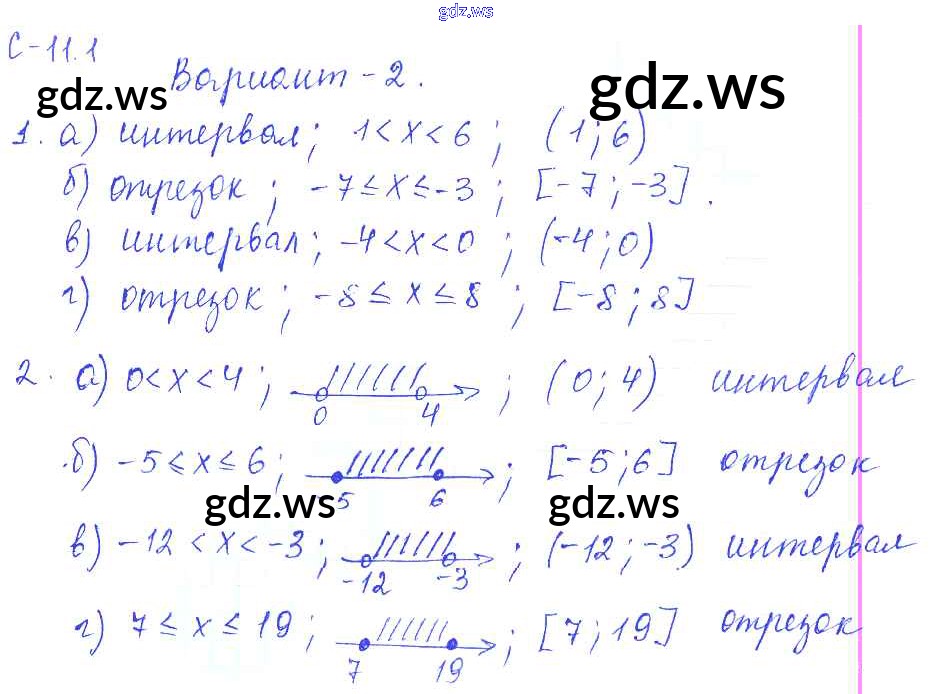 gdz.ws
С-11.1
Вариант-2.
gdz.ws gdz.ws
1. а) интервал; 1<x<6; (1;6)
б) отрезок; -7≤x≤-3; [-7;-3].
в) интервал; -4<x<0; (-4;0)
г) отрезок; -8≤x≤8; [-8;8]
2. а) 0<x<4; 0 4; (0;4) интервал
б) -5≤x≤6; 5 6; [-5;6] отрезок
gdz.ws gdz.ws
в) -12<x<-3; -12 -3; (-12;-3) интервал
г) 7≤x≤19; 7 19; [7;19] отрезок